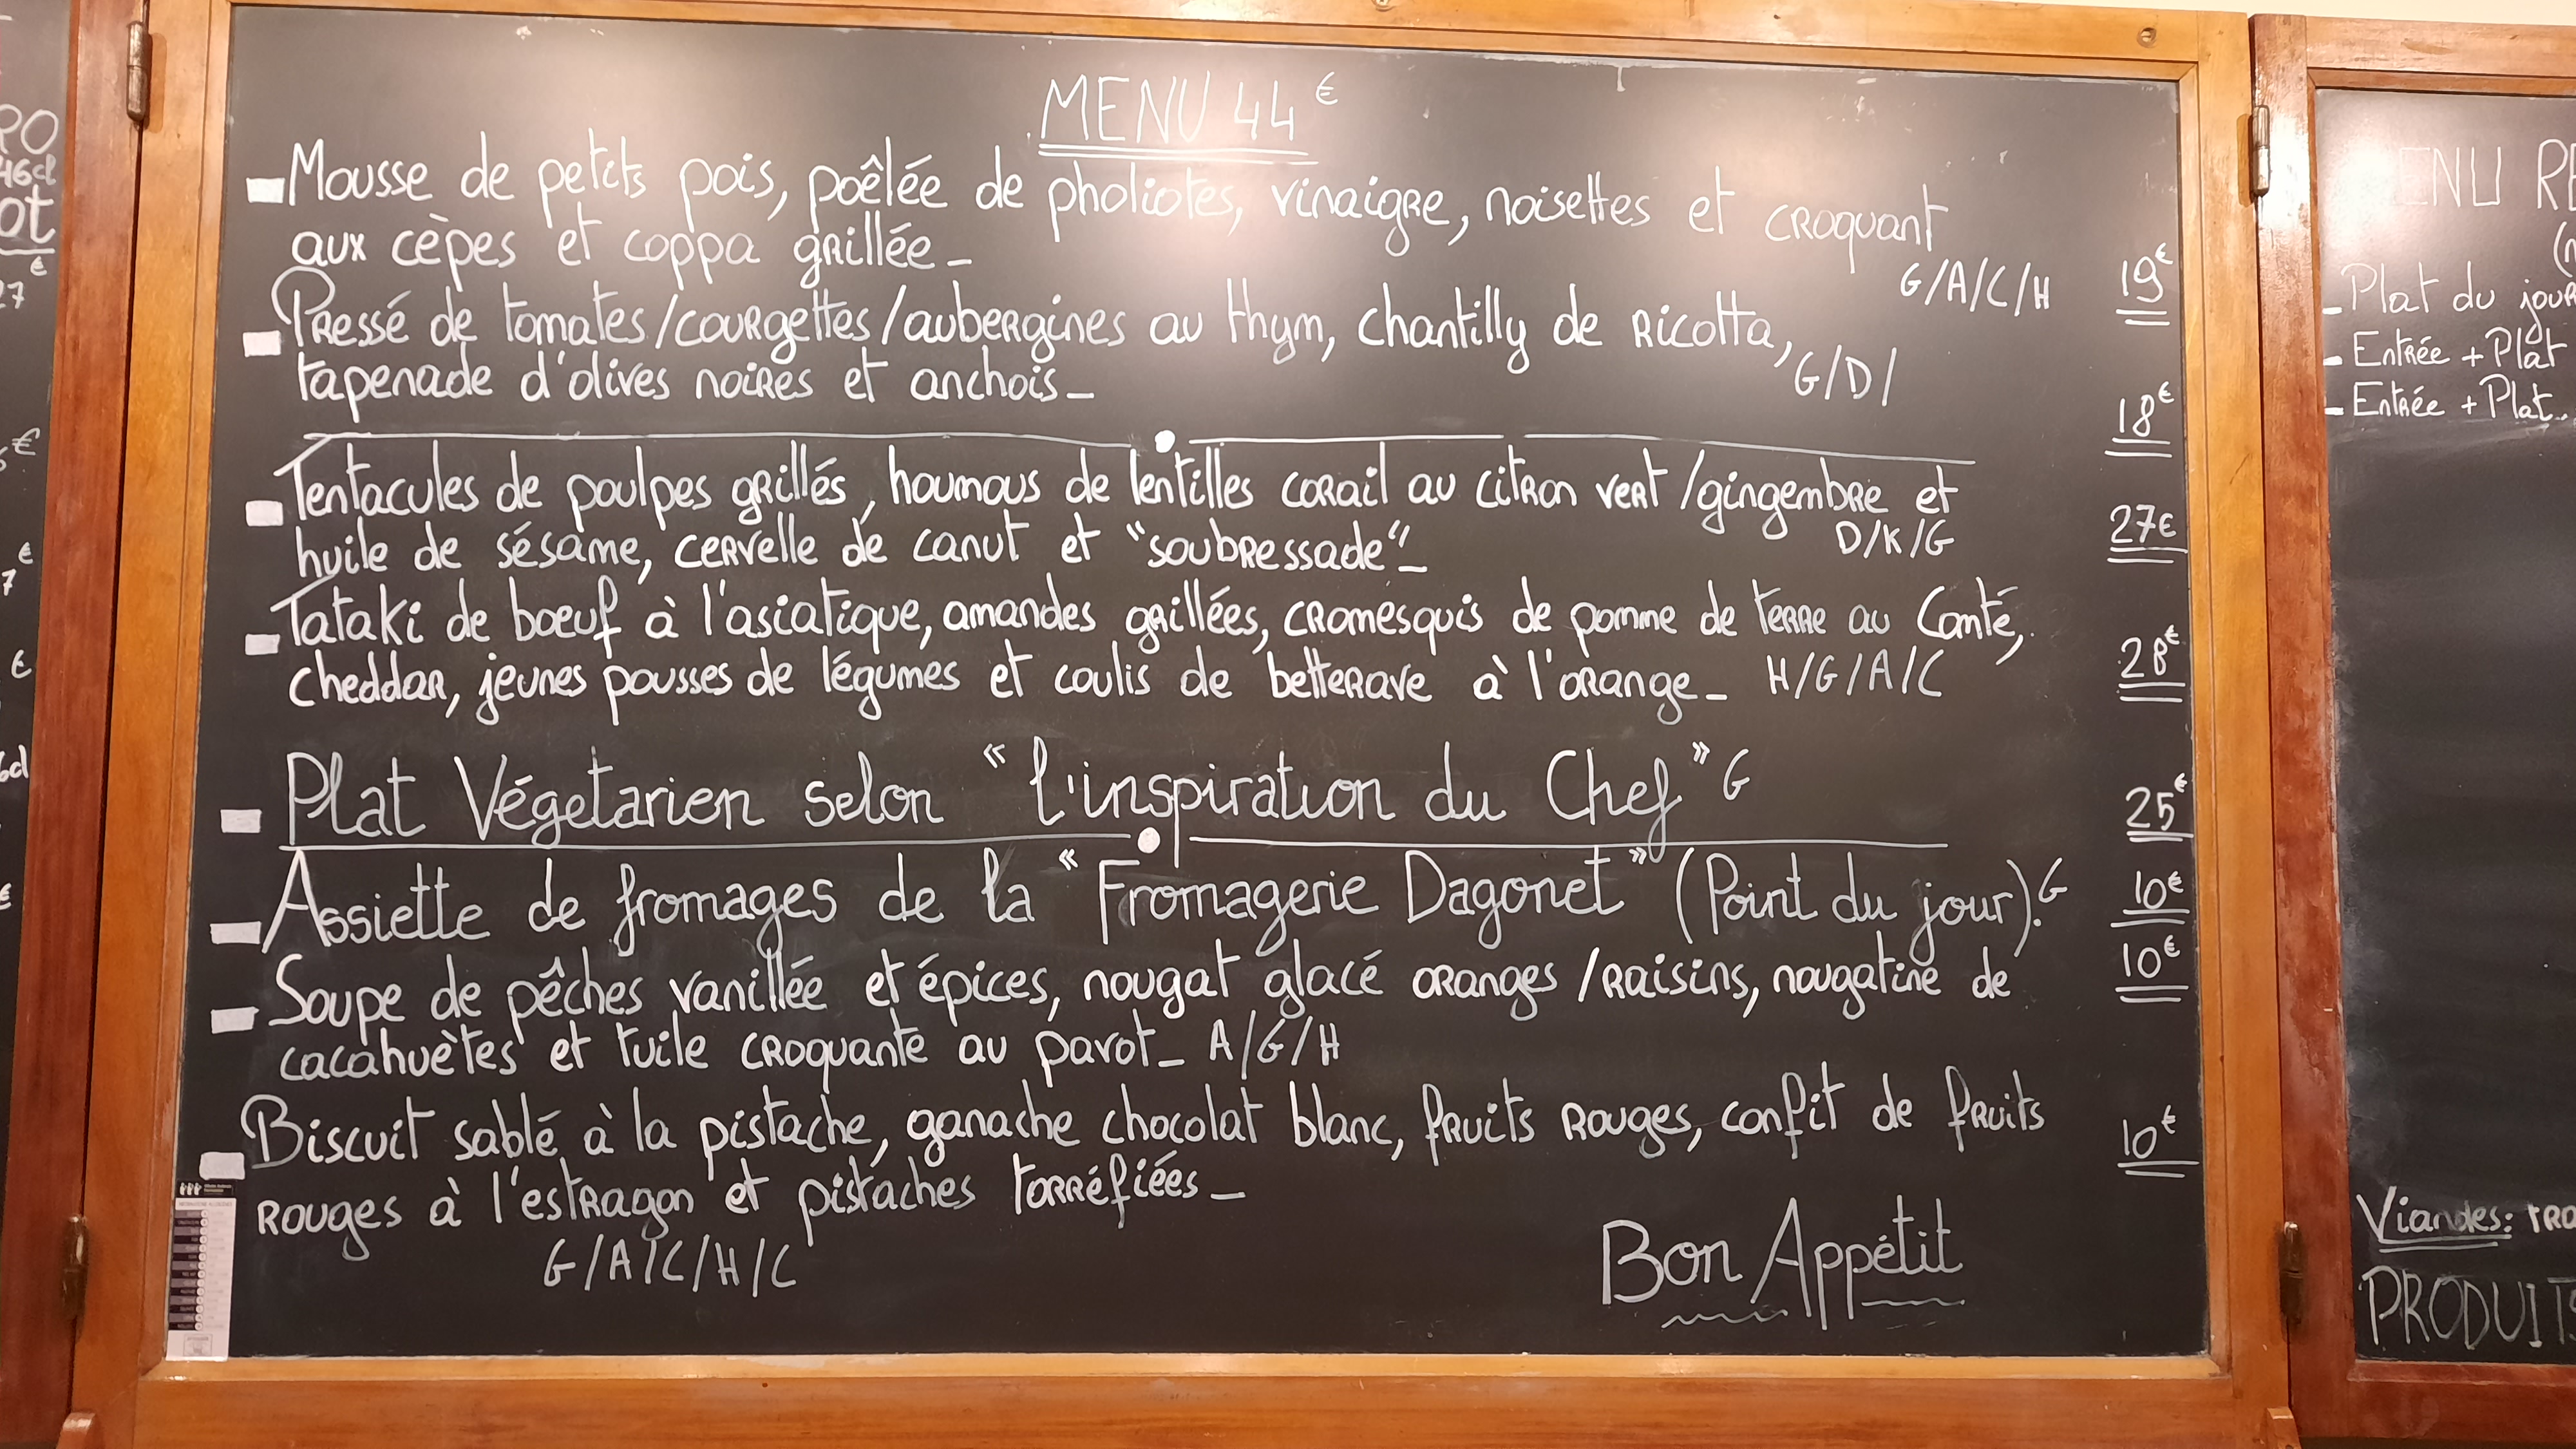 MENU 44€
- Mousse de petits pois, poêlée de pholiotes, vinaigre, noisettes et croquant
aux cèpes et coppa grillée - G/A/C/H 19€
- Pressé de tomates/courgettes/aubergines au thym, chantilly de ricotta,
tapenade d'olives noires et anchois - G/D/ 18€
- Tentacules de poulpes grillés, houmous de lentilles corail au citron vert/gingembre et
huile de sésame, cervelle de canut et "soubressade" - D/K/G 27€
- Tataki de boeuf à l'asiatique, amandes grillées, cromesquis de pomme de terre au Comté,
cheddar, jeunes pousses de légumes et coulis de betterave à l'orange - H/G/A/C 28€
- Plat Végetarien selon "l'inspiration du Chef" G 25€
- Assiette de fromages de la "Fromagerie Dagonet" (Point du jour). G 10€
- Soupe de pêches vanillée et épices, nougat glacé oranges/raisins, nougatine de 10€
cacahuètes et tuile croquante au pavot - A/G/H
- Biscuit sablé à la pistache, ganache chocolat blanc, fruits rouges, confit de fruits 10€
rouges à l'estragon et pistaches torréfiées -
G/A/C/H/C
Bon Appétit
RO
46cl
ot
€
27
€
€
7
€
6cl
€
ENU RE
- Plat du jour
- Entrée + Plat
- Entrée + Plat
Viandes:
PRODUIT